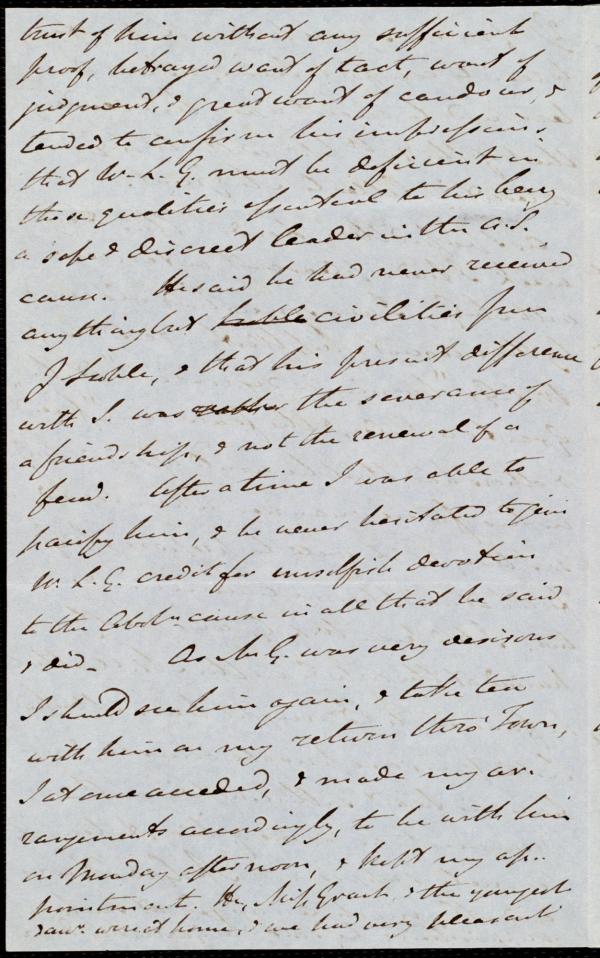 trust of him without any sufficient
proof, betrayed want of tact, want of
judgment, & great want of candour, &
tended to confirm his impressions,
that W. L. G. must be deficient in
those qualities essential to his being
a safe & discreet leader in the A.S.
cause. He said he had never received
anything but civilities from
J Scoble, & that his present difference
with S. was rather the severance of
a friendship, & not the renewal of a
feud. After a time I was able to
pacify him, & he never hesitated to give
W. L. G. credit for unselfish devotion
to the Aboln cause in all that he said
& did - As M. G. was very desirous
I should see him again, & take tea
with him on my return thro' Town,
I at once acceded, & made my ar-
rangements accordingly, to be with him
on Monday afternoon, & kept my ap-
pointment. He, Miss Grant & the youngest
daur. were at home, & we had very pleasant